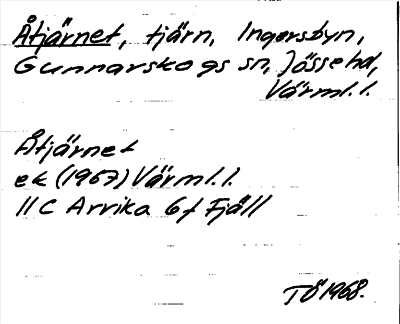 Åtjärnet, tjärn, Ingersbyn,
Gunnarskogs sn, Jösse hd,
Värml.l.
Åtjärnet
ek (1967) Värml.l.
11C Arvika 6f Fjäll
TÖ 1968.